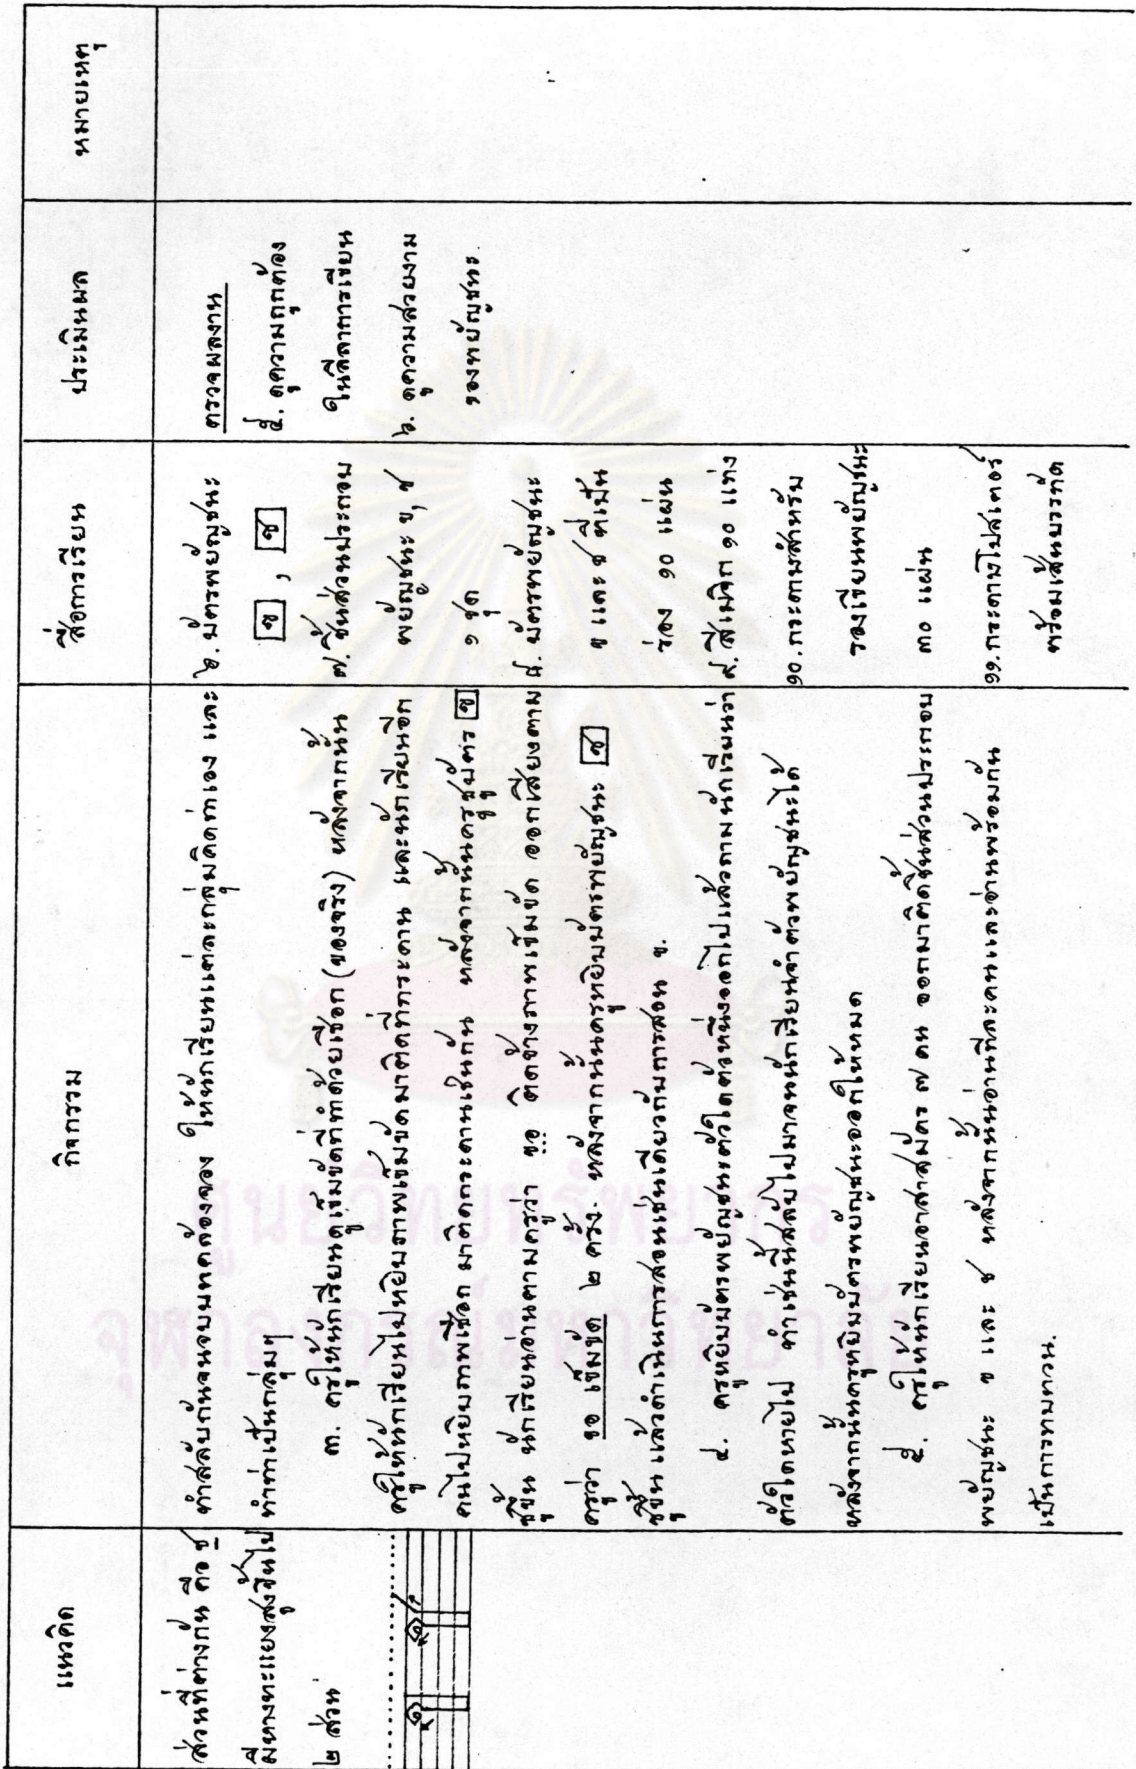 แนวคิด
กิจกรรม
สื่อการเรียน
ประเมินผล
หมายเหตุ
ส่วนที่ต่างกัน คือ ซ
มีหางทะแยงสูงขึ้นไป
๒ ส่วน
ทำสลับกันจนจบบทคล้องจอง ให้นักเรียนแต่ละกลุ่มคิดท่าเอง และ
ทำท่าเป็นกลุ่มๆ
๓. ครูให้นักเรียนดูเข็มขัดที่ทำด้วยเชือก (ของจริง) หลังจากนั้น
ครูให้นักเรียนไปหยิบภาพเข็มขัดมาติดที่กระดาน และนักเรียนอีก
คนไปหยิบภาพเชือก มาติดกระดานเช่นกัน หลังจากนั้นครูชูบัตร ข
ขึ้น นักเรียนอ่านตามครูว่า ขอ ติดข้างภาพเข็มขัด ออกเสียงตาม
ครูว่า ขอ เข็มขัด ๒ ครั้ง. หลังจากนั้นครูหยิบบัตรพยัญชนะ ซ
ชูขึ้น แล้วดำเนินการสอนเช่นเดียวกับการสอน ข.
๔. ครูหยิบบัตรพยัญชนะตัวใดตัวหนึ่งออกไปแล้วถามนักเรียนว่า
ตัวใดหายไป ทำเช่นนี้สลับไปมาจนนักเรียนจำตัวพยัญชนะได้
หลังจากนั้นครูหยิบบัตรพยัญชนะออกให้หมด
๕. ครูให้นักเรียนอาสาสมัคร ๗ คน ออกมาติดชิ้นส่วนประกอบ
พยัญชนะ ข และ ซ หลังจากนั้นอ่านทีละคนและอ่านพร้อมกัน
เป็นการทบทวน.
๖. บัตรพยัญชนะ
ข , ซ
๗. ชิ้นส่วนประกอบ
พยัญชนะ ข, ซ
๑ ชุด
๘. บัตรพยัญชนะ
ข และ ซ ที่เป็น
ร่อง ๑๐ แผ่น
๙. สีเมจิก ๑๐ แท่ง
๑๐. กระดาษสำหรับ
รองเขียนพยัญชนะ
๓๐ แผ่น
๑๑. กระดาษโปสเตอร์
พร้อมเส้นบรรทัด
ตรวจผลงาน
๕. ดูความถูกต้อง
ในลีลาการเขียน
๖. ดูความสวยงาม
ของพยัญชนะ.
ศูนย์วิทยทรัพยากร
จุฬาลงกรณ์มหาวิทยาลัย